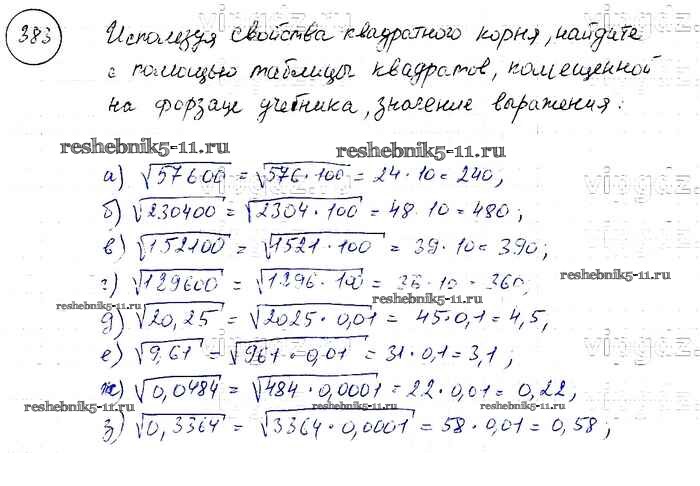 383
Используя свойства квадратного корня, найдите
с помощью таблицы квадратов, помещенной
на форзаце учебника, значение выражения:
reshebnik5-11.ru
reshebnik5-11.ru
а) √57600 = √576·100 = 24·10 = 240;
б) √230400 = √2304·100 = 48·10 = 480;
в) √152100 = √1521·100 = 39·10 = 390;
г) √129600 = √1296·100 = 36·10 = 360;
reshebnik5-11.ru
reshebnik5-11.ru
reshebnik5-11.ru
д) √20,25 = √2025·0,01 = 45·0,1 = 4,5;
е) √9,61 = √961·0,01 = 31·0,1 = 3,1;
ж) √0,0484 = √484·0,0001 = 22·0,01 = 0,22;
reshebnik5-11.ru
reshebnik5-11.ru
з) √0,3364 = √3364·0,0001 = 58·0,01 = 0,58;